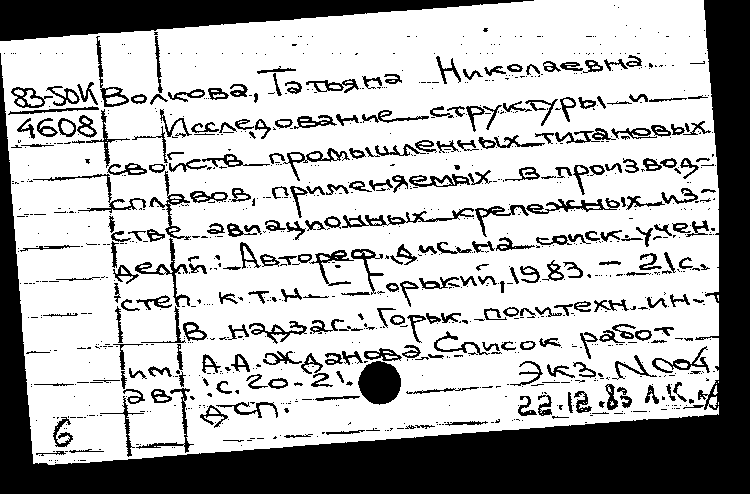 83-50К Волкова, Татьяна Николаевна.
4608 Исследование структуры и
свойств промышленных титановых
сплавов, применяемых в производ-
стве авиационных крепежных из-
делий: Автореф. дис. на соиск. учен.
степ. к.т.н. - Горький, 1983. - 21с.
В надзаг.: Горьк. политехн. ин-т
им. А.А. Жданова. Список работ
авт.: с. 20-21. Экз. N004.
ДСП. 22.12.83 Л.К.
6